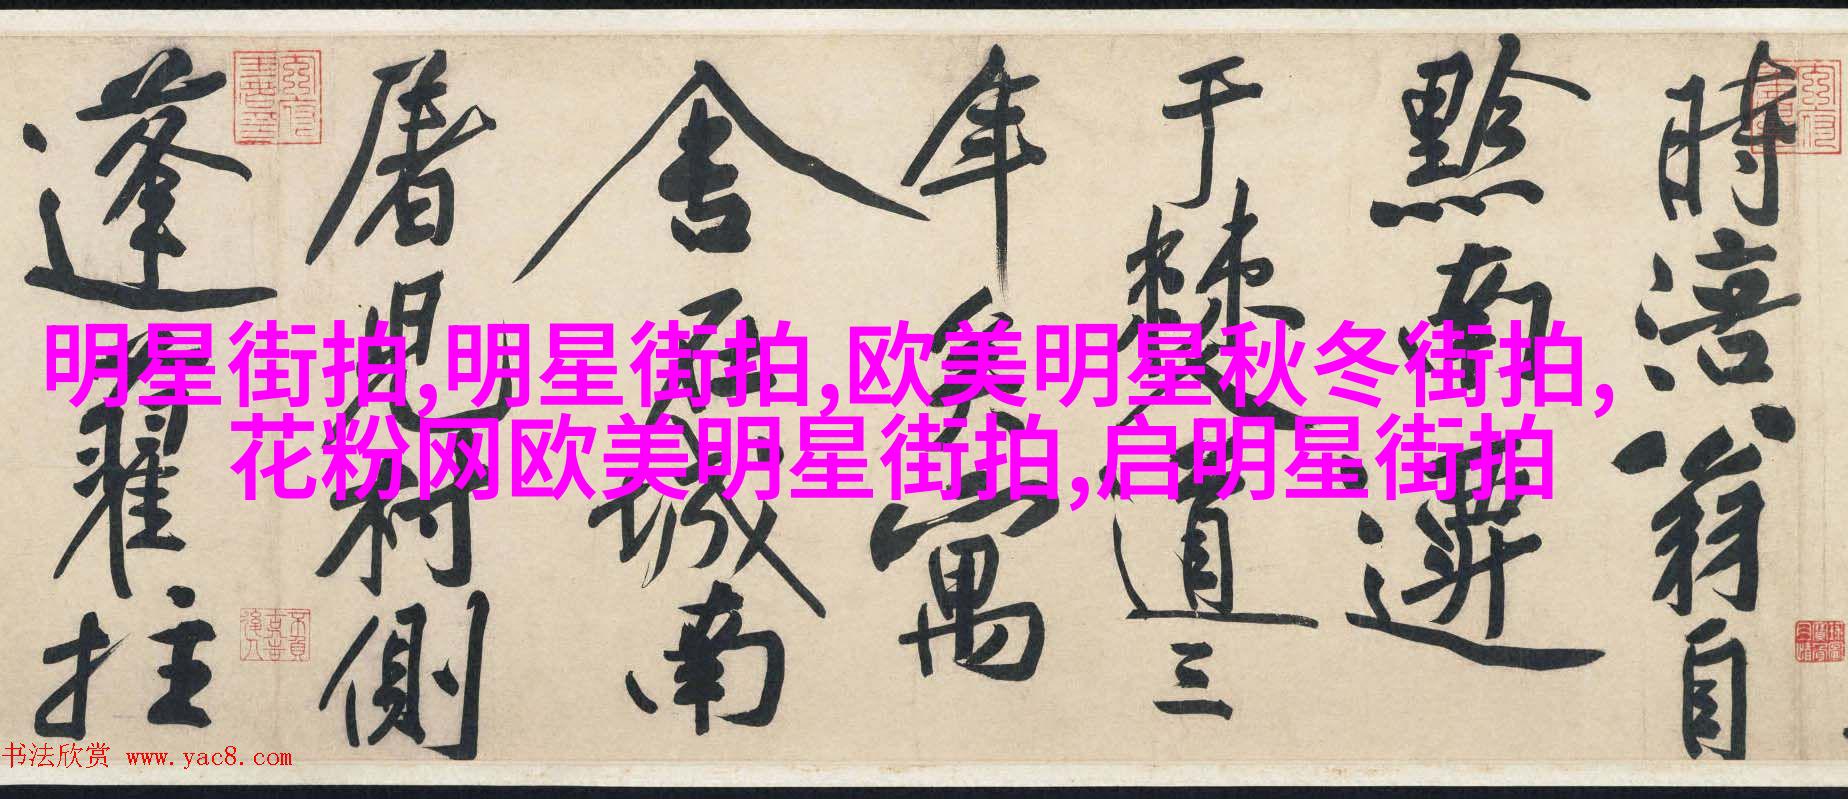 時涪翁自
黔南遷
于僰道三
年矣寓
舍在城南
屠兒村側
蓬藋拄
明星街拍,明星街拍,欧美明星秋冬街拍,
花粉网欧美明星街拍,启明星街拍
书法欣赏 www.yac8.com